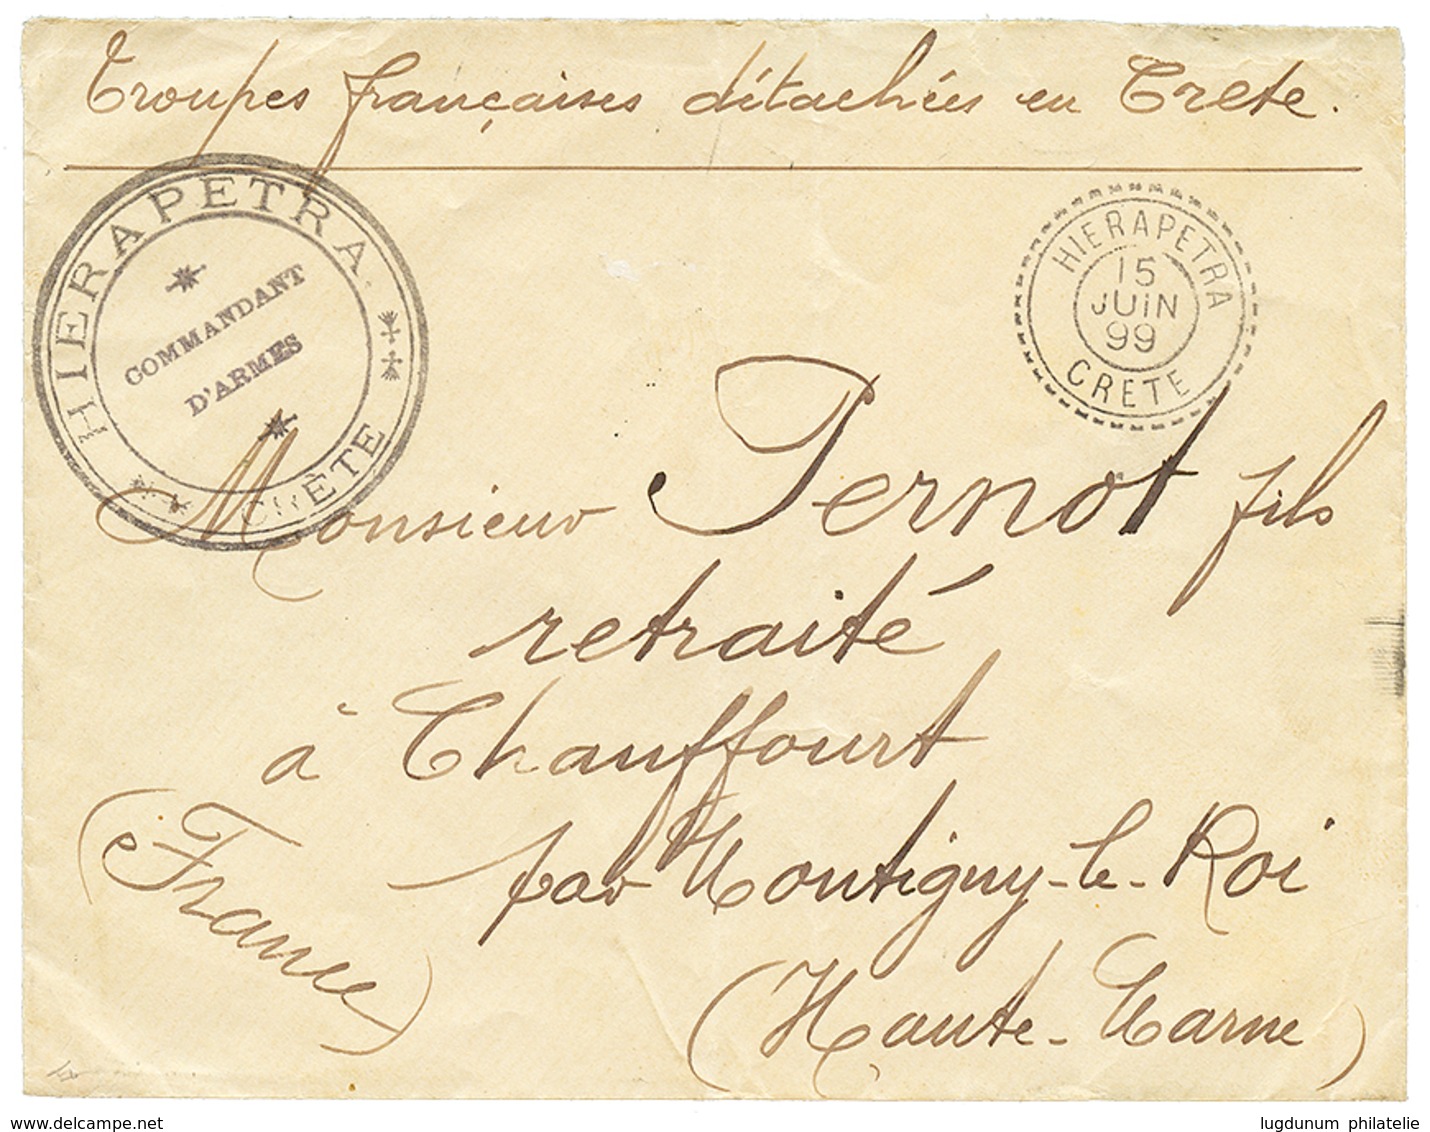 Troupes françaises détachées en Crete.
HIERAPETRA
COMMANDANT
D'ARMES
CRÈTE
HIERAPETRA
15
JUIN
99
CRETE
Monsieur Pernot fils
retraité
à Chauffourt
par Montigny-le-Roi
(Haute-Marne)
(France)
www.delcampe.net
lugdunum philatelie